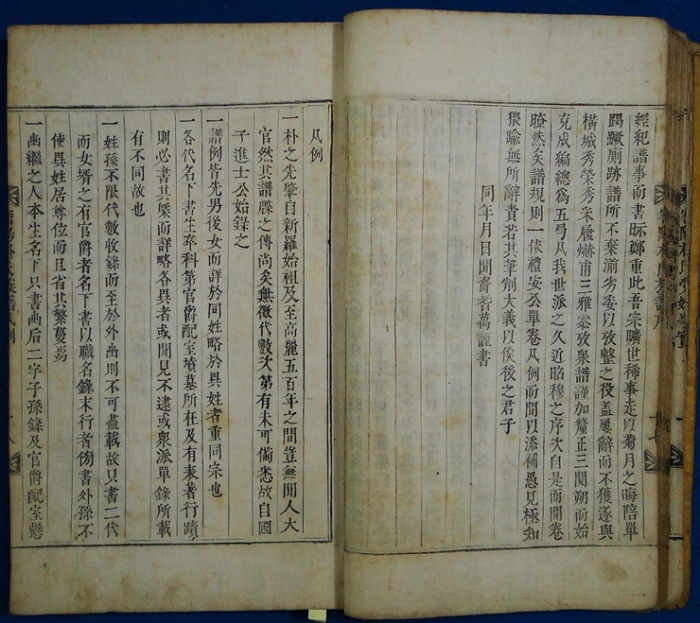 經紀譜事而書眎鄭重此吾宗曠世稀事走以菊月之晦陪單
蹋蹶廁跡譜所不棄湔劣委以攷整之役盖屢辭而不獲遂與
橫城秀榮秀采履爀甫三雅叅攷衆譜謹加釐正三閱朔而始
克成編總為五弓凡我世派之久近昭穆之序次自是而開卷
瞭然矣譜規則一依禮安公單卷凡例而間以添補愚見極知
猥踰無所辭責若其筆削大義以俟後之君子
同年月日聞裔者萬謹書
凡例
一朴之先肇自新羅始祖及至高麗五百年之間豈無聞人大
官然其譜牒之傳尚矣無徵代數次第有未可備悉故自國
子進士公始錄之
一譜例皆先男後女而詳於同姓略於異姓者重同宗也
一各代名下書生卒科第官爵配室墳墓所在及有表著行蹟
則必書其槩而詳略各異者或聞見不逮或衆派單錄所載
有不同故也
一姓孫不限代數收錄而至於外曲則不可盡載故只書二代
而女壻之有官爵者名下書以職名錄末行者傍書外孫不
使異姓居尊位而且省其繁蔓焉
一出繼之人本生名下只書出后二字子孫錄及官爵配室懸